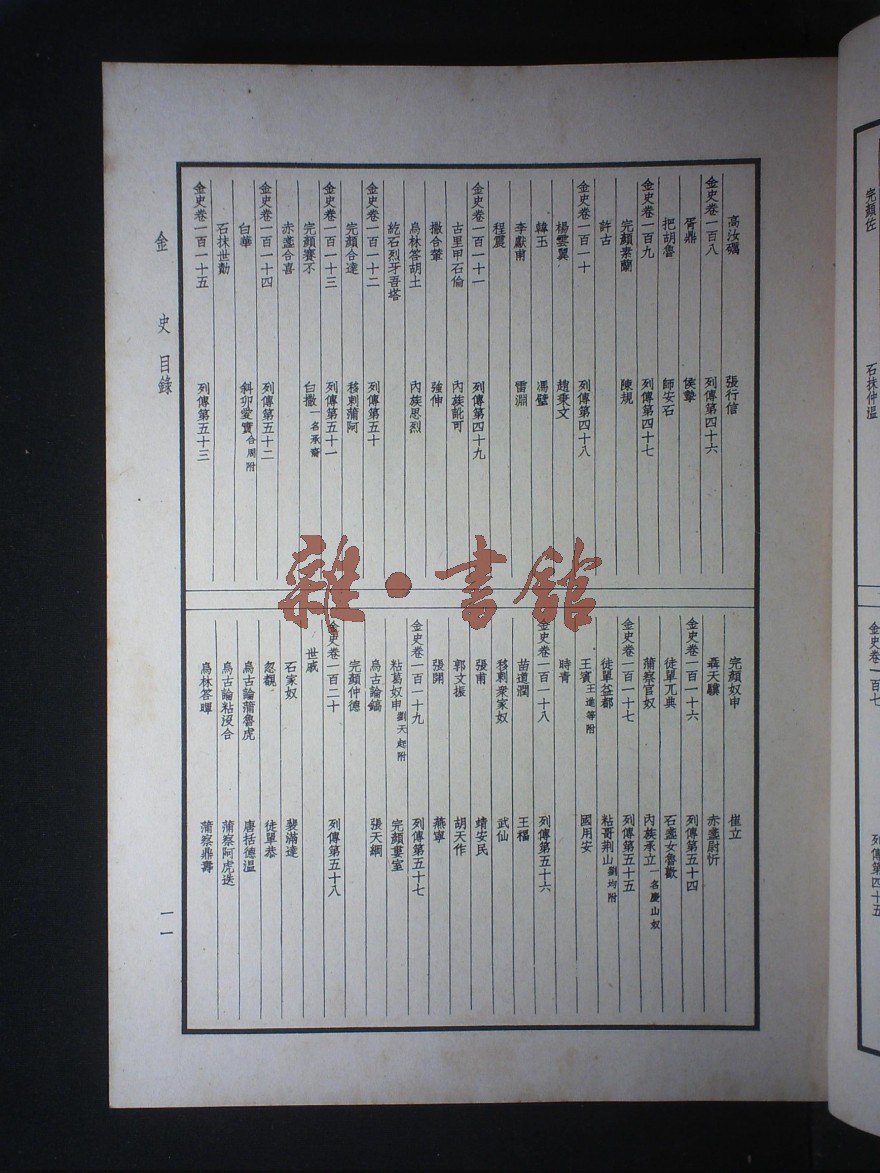 高汝礪 張行信
金史卷一百八 列傳第四十六
胥鼎 侯摯
把胡魯 師安石
金史卷一百九 列傳第四十七
完顏素蘭 陳規
許古
金史卷一百一十 列傳第四十八
楊雲翼 趙秉文
韓玉 馮璧
李獻甫 雷淵
程震
金史卷一百一十一 列傳第四十九
古里甲石倫 內族訛可
撒合輦 強伸
烏林答胡土 內族思烈
紇石烈牙吾塔
金史卷一百一十二 列傳第五十
完顏合達 移剌蒲阿
金史卷一百一十三 列傳第五十一
完顏賽不 白撒一名承裔
赤盞合喜
金史卷一百一十四 列傳第五十二
白華 斜卯愛實合周附
石抹世勣
金史卷一百一十五 列傳第五十三
完顏奴申 崔立
聶天驥 赤盞尉忻
金史卷一百一十六 列傳第五十四
徒單兀典 石盞女魯歡
蒲察官奴 內族承立一名慶山奴
金史卷一百一十七 列傳第五十五
徒單益都 粘哥荆山劉均附
王賓王進等附 國用安
時青
金史卷一百一十八 列傳第五十六
苗道潤 王福
移剌眾家奴 武仙
張甫 靖安民
郭文振 胡天作
張開 燕寧
金史卷一百一十九 列傳第五十七
粘葛奴申劉天起附 完顏婁室
烏古論鎬 張天綱
完顏仲德
金史卷一百二十 列傳第五十八
世戚
石家奴 裴滿達
忽覩 徒單恭
烏古論蒲魯虎 唐括德溫
烏古論粘沒合 蒲察阿虎迭
烏林答暉 蒲察鼎壽
金史 目錄
一一
雜·書館
完顏佐 石抹仲溫
金史卷一百七 列傳第四十五